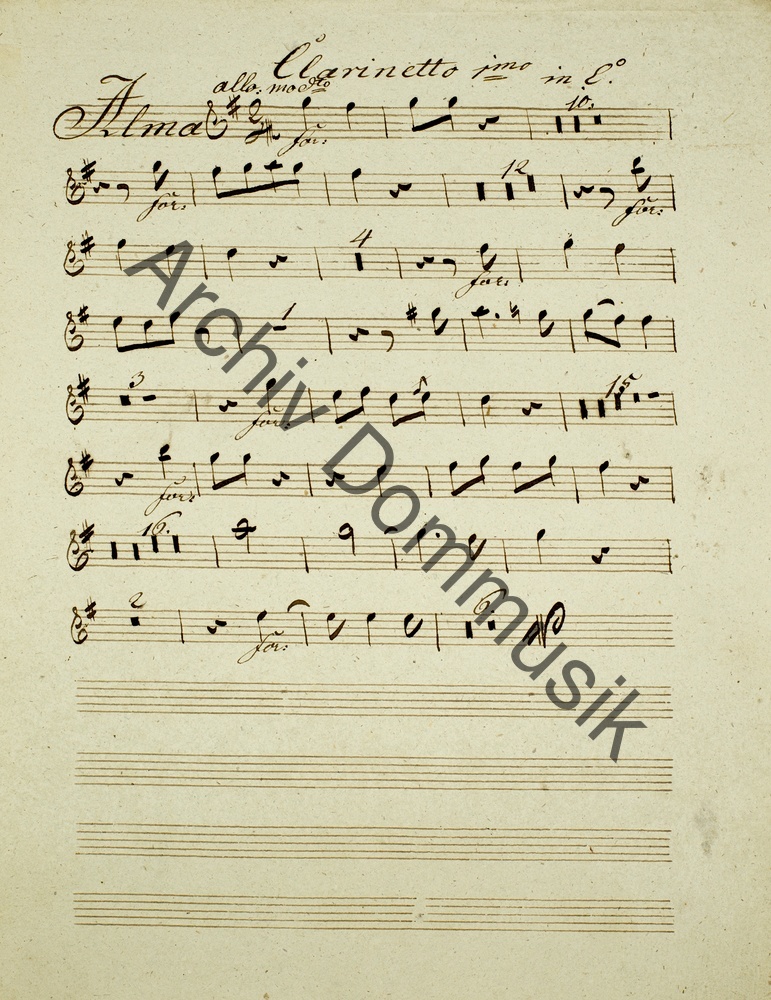 Clarinetto imo in C.
allo: modto
Alma
for:
10.
for:
12
for:
4
for:
1
3
for:
15
for:
16.
2
for:
6.
Archiv Dommusik